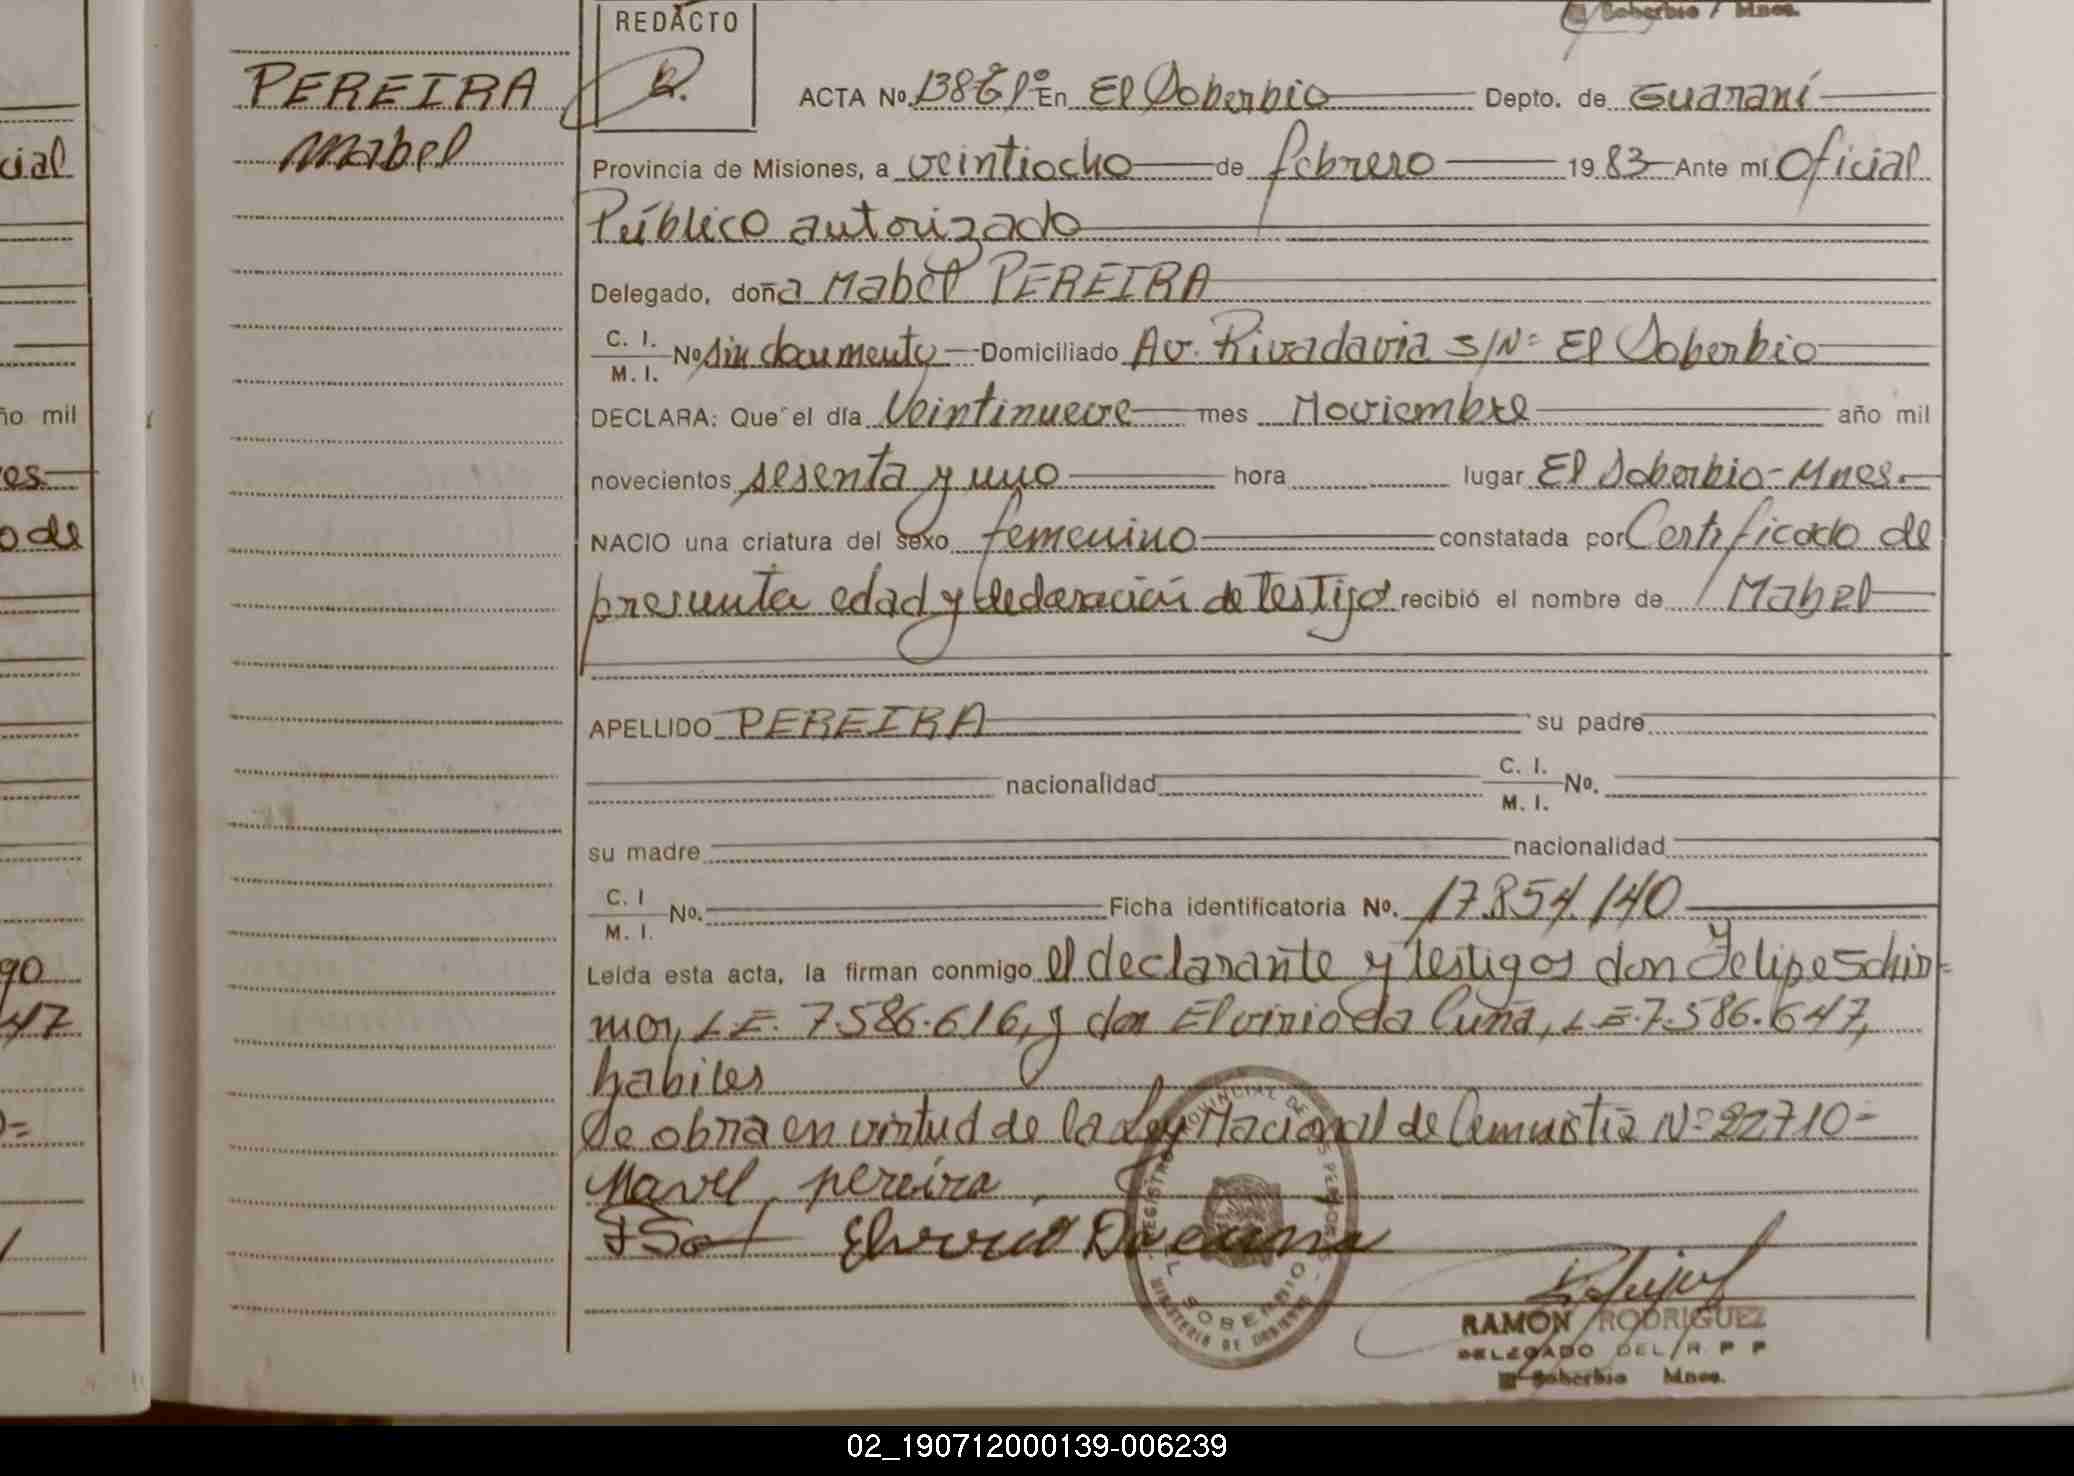 Soberbio / Mnes.
REDACTO
PEREIRA
Mabel
ACTA No. 138 En El Soberbio Depto. de Guaraní
Provincia de Misiones, a veintiocho de febrero 1983 Ante mí Oficial
Público autorizado
Delegado, doña Mabel PEREIRA
C. I.
M. I. No sin documento Domiciliado Av. Rivadavia S/Nº El Soberbio
DECLARA: Que el día Veintinueve mes Noviembre año mil
novecientos sesenta y uno hora lugar El Soberbio-Mnes.
NACIO una criatura del sexo femenino constatada por Certificado de
presunta edad y declaración de testigos recibió el nombre de Mabel
APELLIDO PEREIRA su padre
nacionalidad C. I.
M. I. No.
su madre nacionalidad
C. I
M. I. No. Ficha identificatoria No. 17.854.140
Leída esta acta, la firman conmigo el declarante y testigos don Felipe
L.E. 7.586.616, y don Elvirio da Cuña, L.E. 7.586.647,
habiles
Se obra en virtud de la Ley Nacional de Amnistia Nº 22710-
Mavel pereira
Da cunha
EL SOBERBIO
MINISTERIO DE GOBIERNO
RAMON RODRIGUEZ
DELEGADO DEL R P P
El Soberbio Mnes.
cial
ño mil
es
o de
90
47
02_190712000139-006239